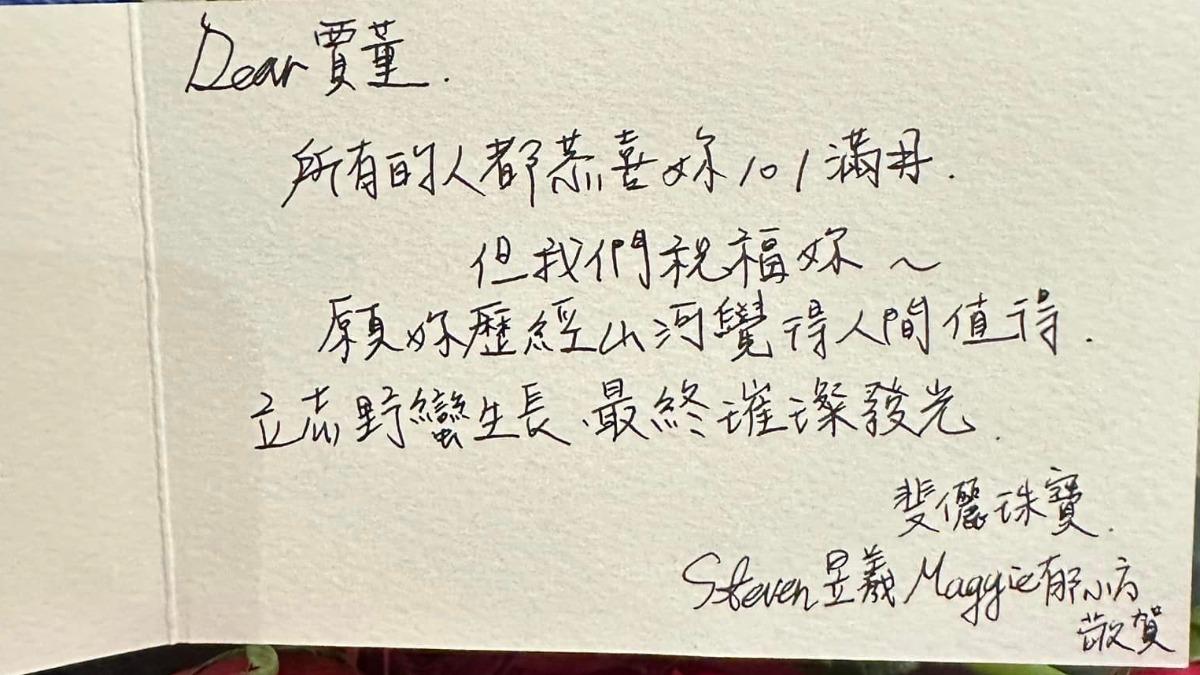 Dear 賈董.
所有的人都恭喜妳101滿月.
但我們祝福妳~
願妳歷經山河覺得人間值得.
立志野蠻生長、最終璀璨發光.
斐儷珠寶.
Steven昱羲 Maggie郁小方
敬賀